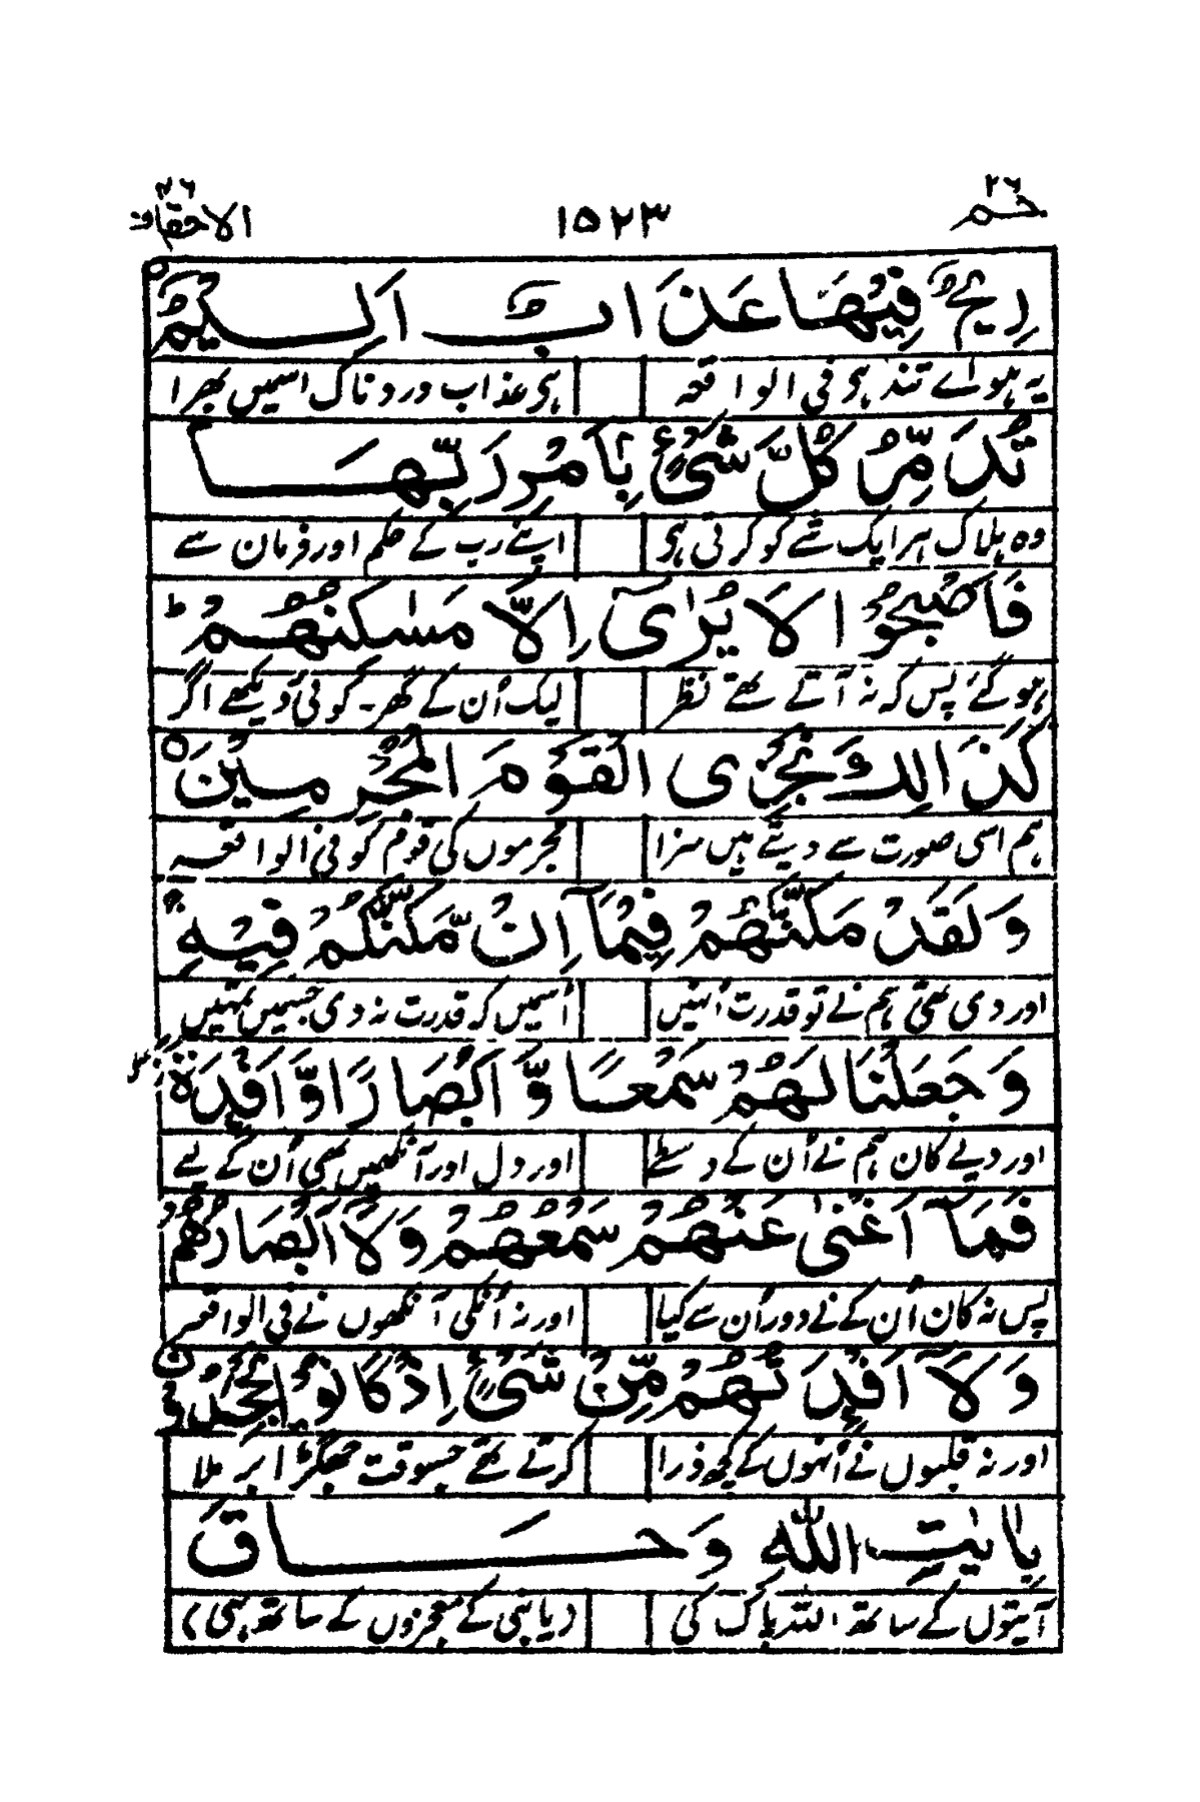 حٰم ٢٦ ١٥٢٣ الاحقاف ٤٦
رِيْحٌ فِيْهَا عَذَابٌ اَلِيْمٌ
یہ ہوائے تند ہی فی الواقعہ ہی عذاب دردناک اسمیں بھرا
تُدَمِّرُ كُلَّ شَیْءٍۭ بِاَمْرِ رَبِّهَا
وہ ہلاک ہر ایک شے کو کرتی ہی اپنے رب کے حکم اور فرمان سے
فَاَصْبَحُوْا لَا يُرٰۤى اِلَّا مَسٰكِنُهُمْ ؕ
ہو گئے پس کہ نہ آتے تھے نظر لیک اُن کے گھر ۔ کوئی دیکھے اگر
كَذٰلِكَ نَجْزِى الْقَوْمَ الْمُجْرِمِيْنَ
ہم اسی صورت سے دیتے ہیں سزا مجرموں کی قوم کو فی الواقعہ
وَلَقَدْ مَكَّنّٰهُمْ فِيْمَاۤ اِنْ مَّكَّنّٰكُمْ فِيْهِ
اور دی تھی ہم نے تو قدرت اُنہیں اُسمیں کہ قدرت نہ دی جسمیں تمہیں
وَجَعَلْنَا لَهُمْ سَمْعًا وَّاَبْصَارًا وَّاَفْـِٕدَةً
اور دیے کان ہم نے اُن کے واسطے اور دل اور آنکھیں بھی اُن کے لیے
فَمَاۤ اَغْنٰى عَنْهُمْ سَمْعُهُمْ وَلَاۤ اَبْصَارُهُمْ
پس نہ کان اُن کے نے دور اُن سے کیا اور نہ اُنکی آنکھوں نے فی الواقعہ
وَلَاۤ اَفْـِٕدَتُهُمْ مِّنْ شَیْءٍ اِذْ كَانُوْا يَجْحَدُوْنَ
اور نہ قلبوں نے اُنہوں کے کچھ ذرا کرتے تھے جسوقت جھگڑا برملا
بِاٰيٰتِ اللّٰهِ وَحَاقَ
آیتوں کے ساتھ اللہ پاک کی (یا نبی کے معجزوں کے ساتھ ہی)